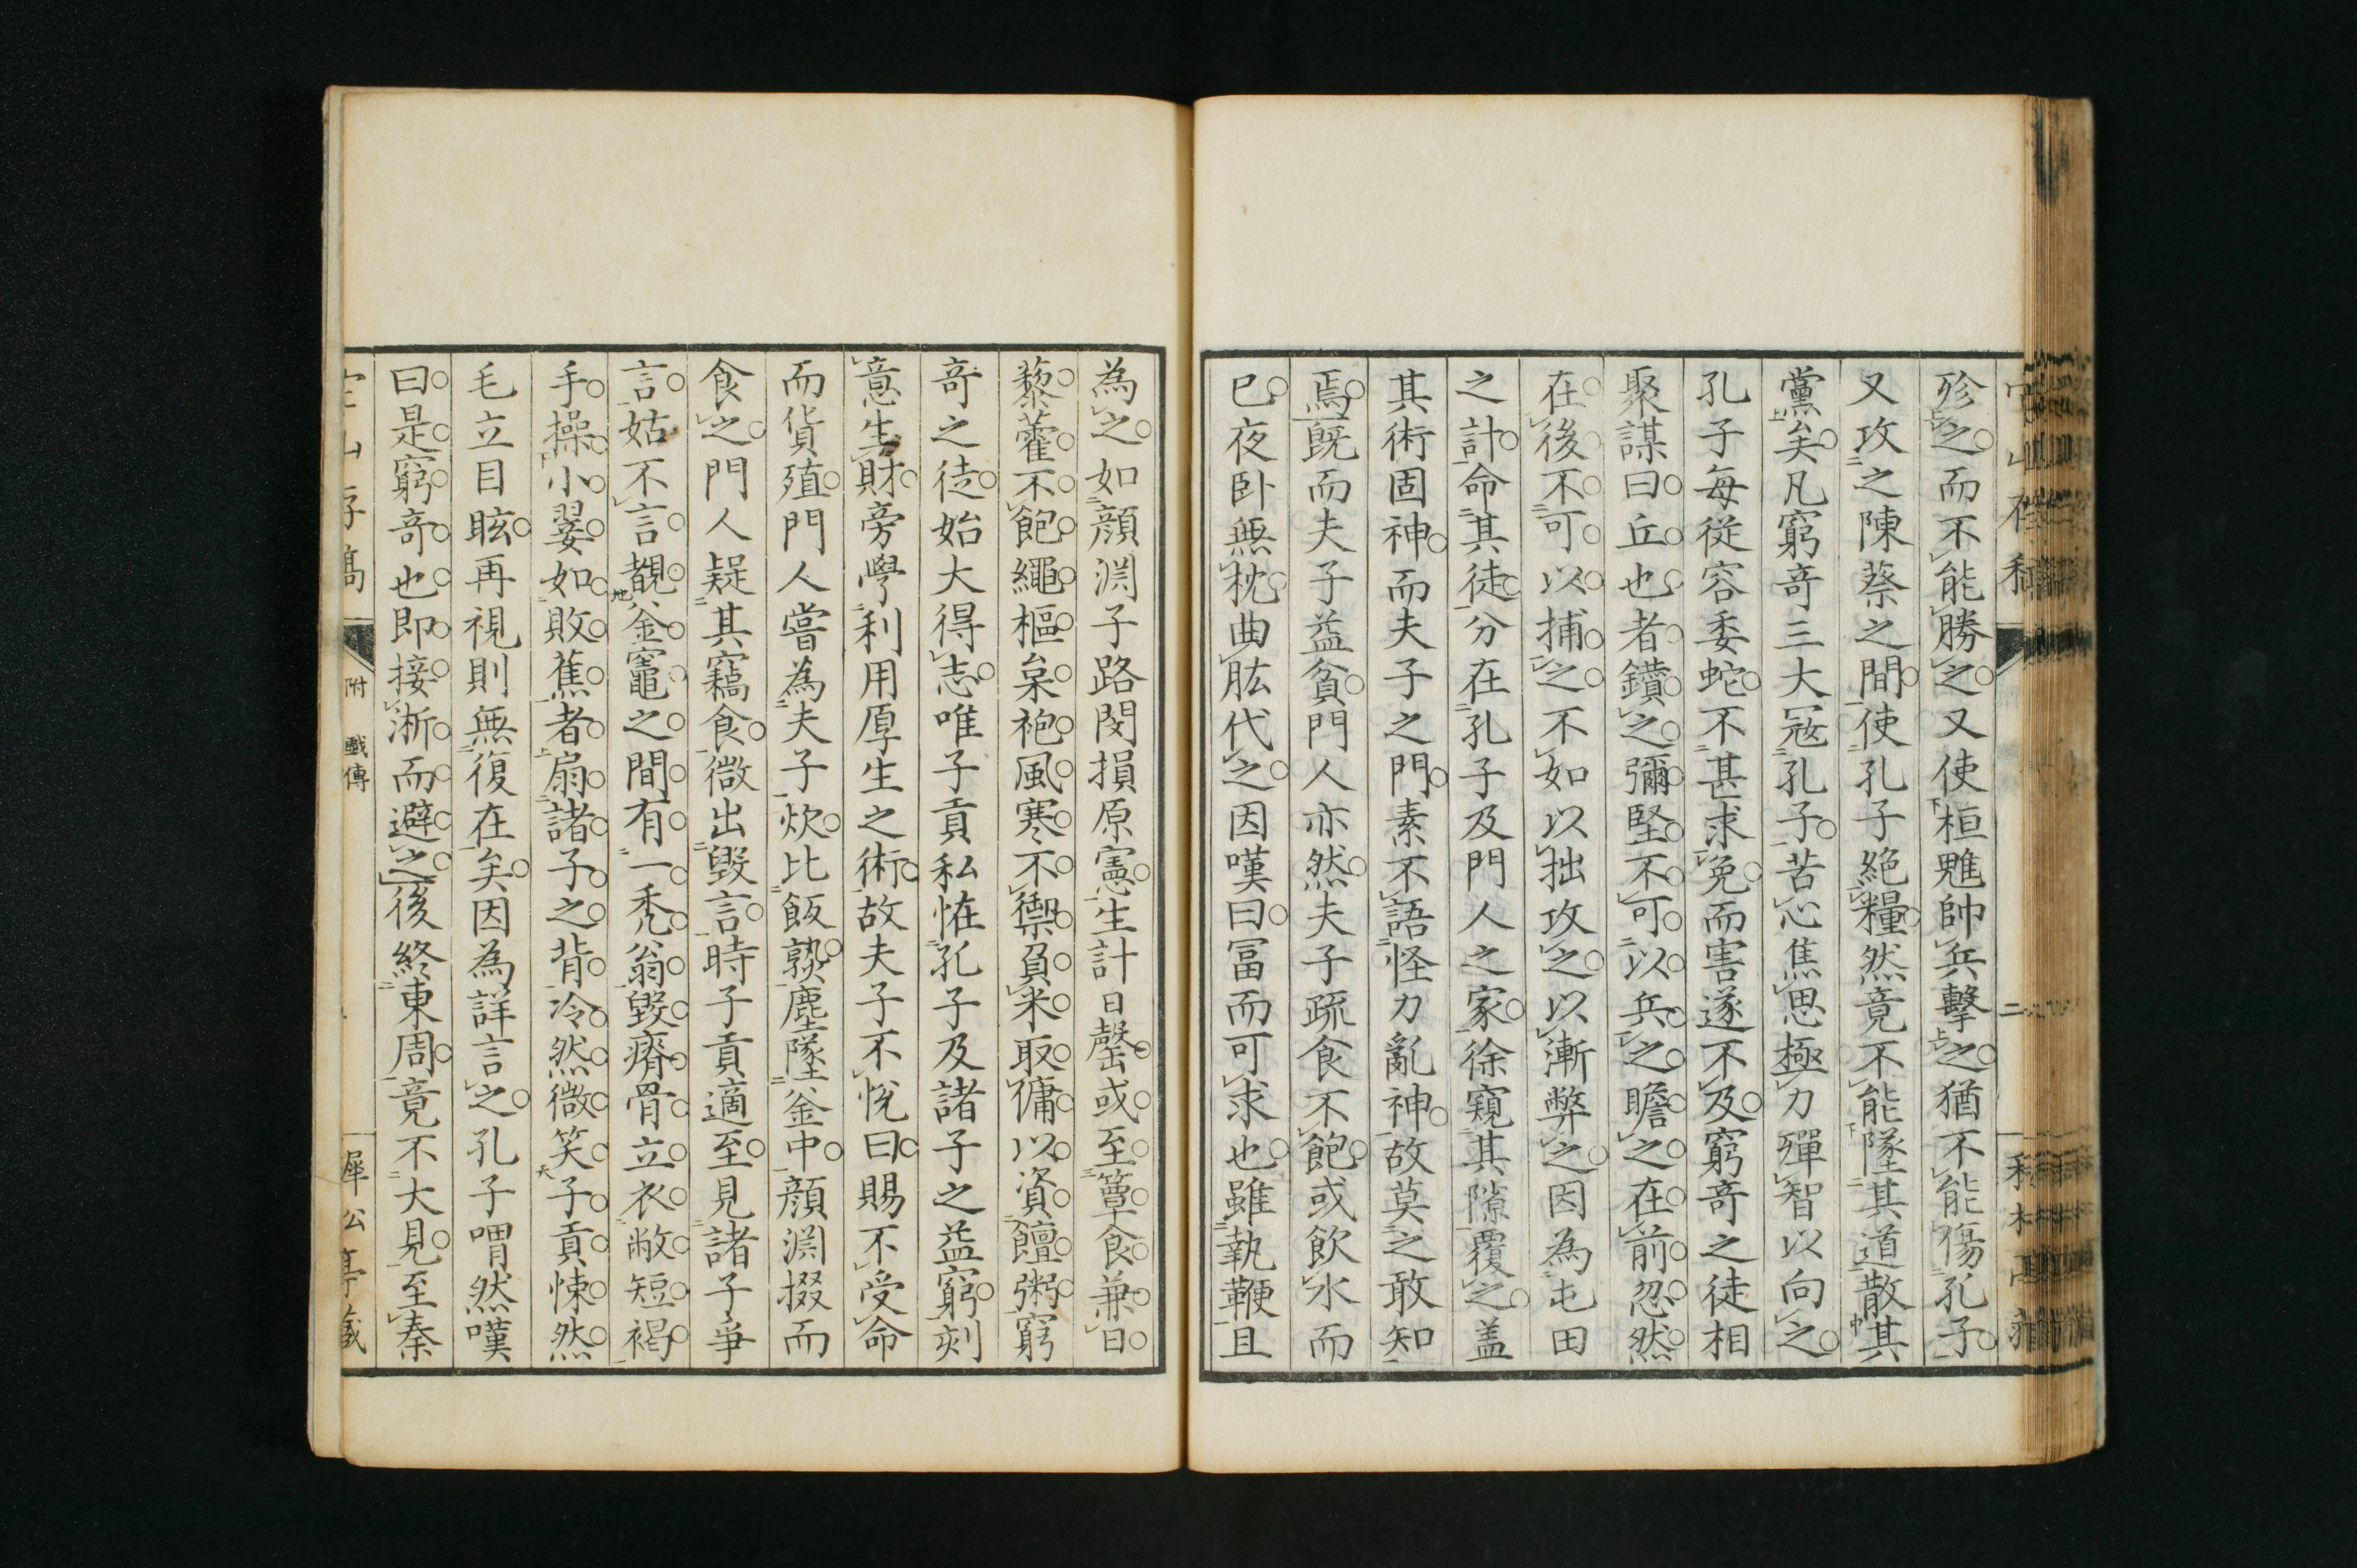 殄之而不能勝之又使桓魋帥兵擊之猶不能傷孔子
又攻之陳蔡之間使孔子絶糧然竟不能墜其道散其
黨矣凡窮竒三大冦孔子苦心焦思極力殫智以向之
孔子每從容委蛇不甚求免而害遂不及窮竒之徒相
聚謀曰丘也者鑽之彌堅不可以兵之瞻之在前忽然
在後不可以捕之不如以拙攻之以漸弊之因為屯田
之計命其徒分在孔子及門人之家徐窺其隙覆之盖
其術固神而夫子之門素不語怪力亂神故莫之敢知
焉既而夫子益貧門人亦然夫子疏食不飽或飲水而
已夜卧無枕曲肱代之因嘆曰冨而可求也雖執鞭且
為之如顔渕子路閔損原憲生計日罄或至簞食兼日
藜藿不飽繩樞枲袍風寒不禦負米取傭以資饘粥窮
竒之徒始大得志唯子貢私恠孔子及諸子之益窮刻
意生財旁學利用厚生之術故夫子不悅曰賜不受命
而貨殖門人嘗為夫子炊比飯熟塵墜釜中顔渕掇而
食之門人疑其竊食微出毀言時子貢適至見諸子爭
言姑不言覩釜竈之間有一禿翁毀瘠骨立衣敝短褐
手操小翣如敗蕉者扇諸子之背冷然微笑子貢悚然
毛立目眩再視則無復在矣因為詳言之孔子喟然嘆
曰是窮竒也即接淅而避之後終東周竟不大見至秦
附 戲傳